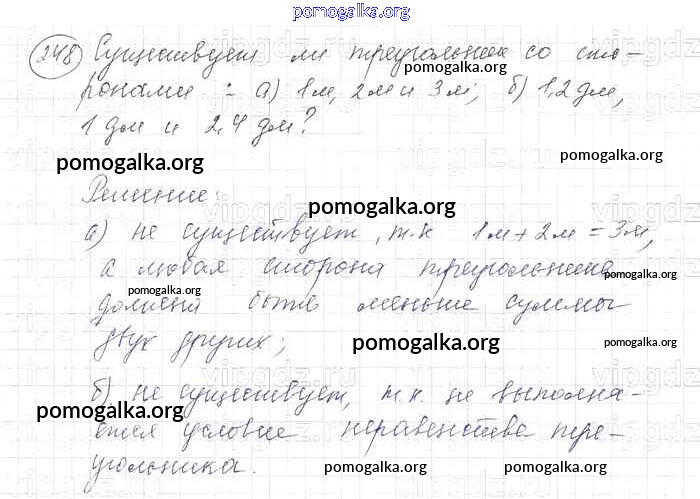 pomogalka.org
248 Существует ли треугольник со сто-
pomogalka.org
ронами : а) 1 м, 2 м и 3 м; б) 1,2 дм,
1 дм и 2,4 дм?
pomogalka.org pomogalka.org
Решение:
pomogalka.org
а) не существует, т.к 1м + 2м = 3м,
а любая сторона треугольника
pomogalka.org
pomogalka.org
должна быть меньше суммы
двух других;
pomogalka.org pomogalka.org
б) не существует, т.к. не выполня-
pomogalka.org
ется условие неравенства тре-
угольника.
pomogalka.org pomogalka.org